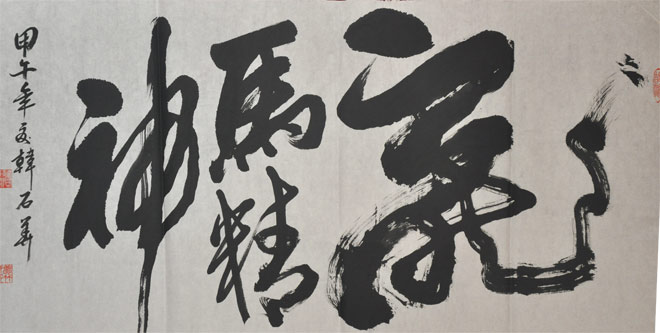 龍
馬精
神
甲午年夏韓石